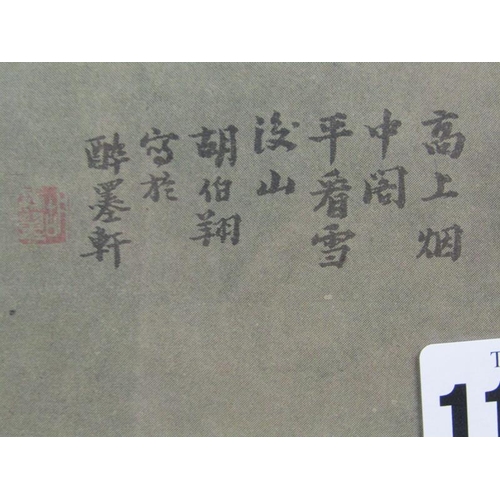 高上烟
中阁
平看雪
後山
胡伯翔
写於
醉墨軒
T
11